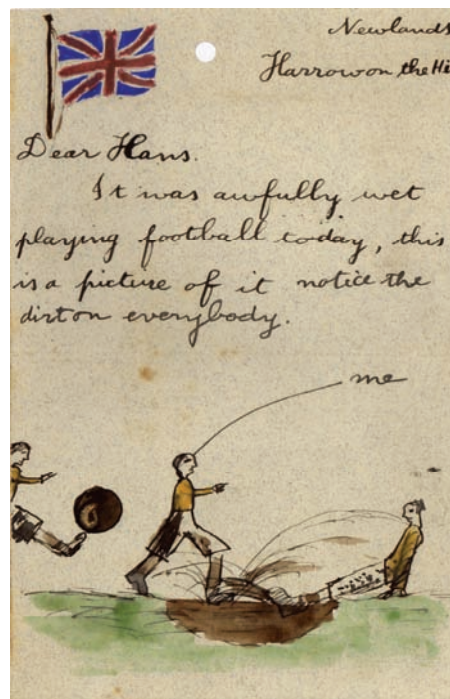 Newlands
Harrow on the Hi
Dear Hans.
It was awfully wet
playing football today, this
is a picture of it notice the
dirt on everybody.
me